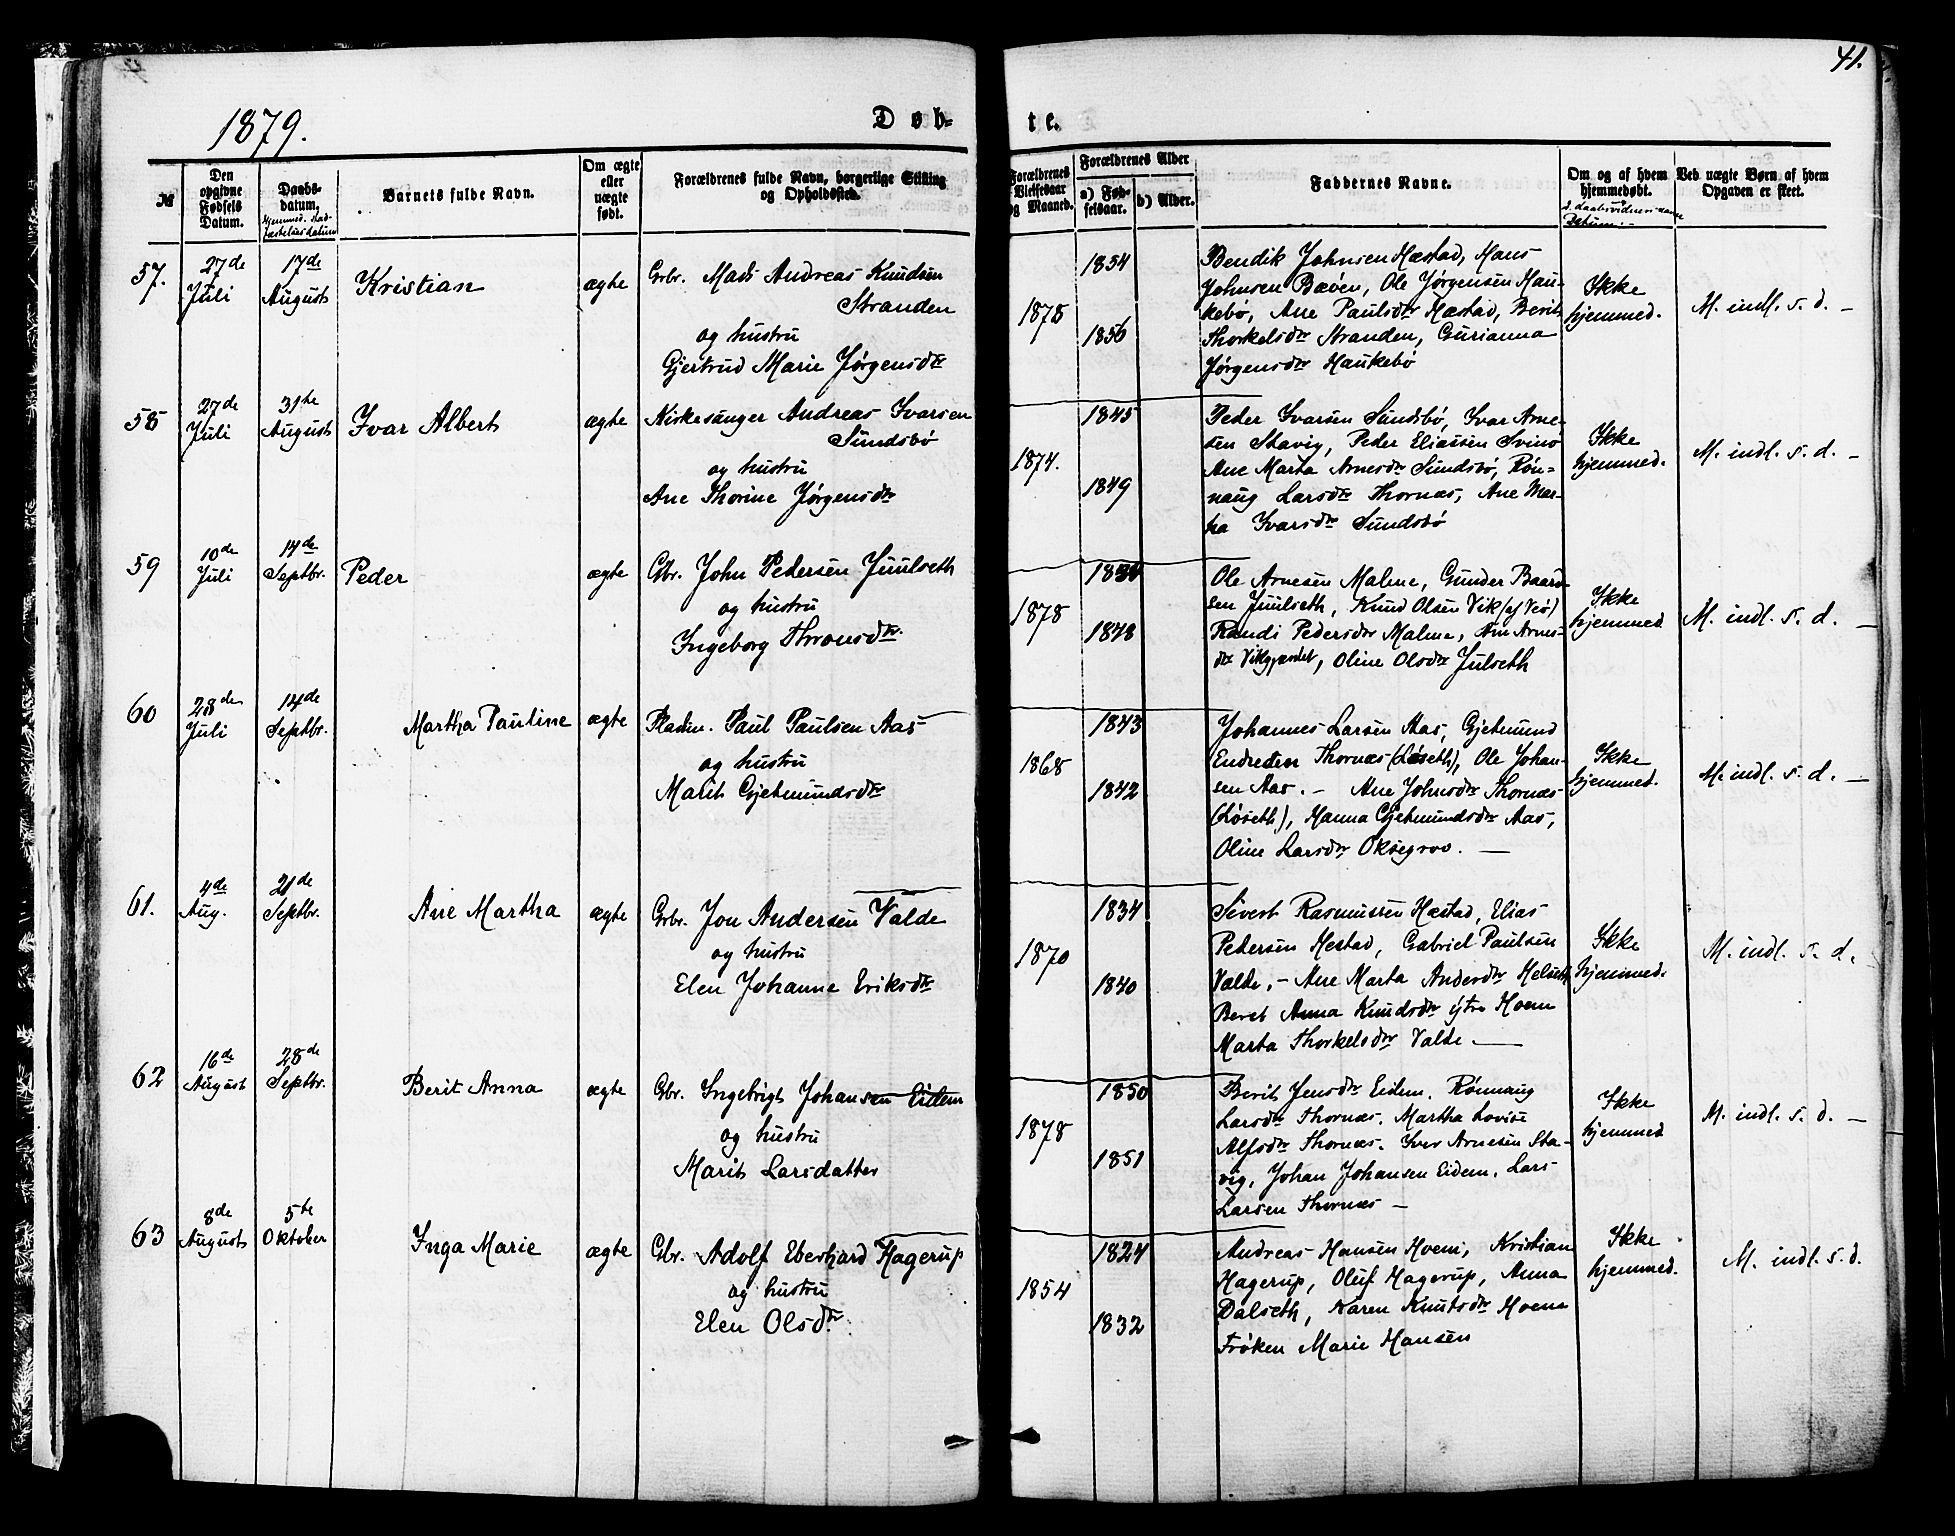 41.
1879.
Døb-
te.
№
Den opgivne Fødsels Datum.
Daabs-datum.
Barnets fulde Navn.
Om ægte eller uægte født.
Forældrenes fulde Navn, borgerlige Stilling og Opholdssted.
Forældrenes Vielsesaar og Maaned.
Forældrenes Alder
a) Fødselsaar.
b) Alder.
Faddernes Navne.
Om og af hvem hjemmedøbt.
Ved uægte Børn af hvem Opgaven er skeet.
57.
27de Juli
17de August
Kristian
ægte
Gbr. Mads Andreas Knudsen
Stranden
og hustru
Gjertrud Marie Jørgensdtr
1875
1854
1856
Bendik Johnsen Hæstad, Hans
Johnsen Bævën, Ole Jørgensen Hau-
kebø, Ane Paulsdtr Hæstad, Berit
Thorkelsdtr Stranden, Gurianna
Jørgensdtr Haukebø
Ikke
hjemmed.
M. indl. s. d. -
58
27de Juli
31te August
Ivar Albert
ægte
Kirkesanger Andreas Ivarsen
Sundsbø
og hustru
Ane Thorine Jørgensdtr
1874.
1845
1849
Peder Ivarsen Sundsbø, Ivar Arne-
sen Stavig, Peder Eliassen Svinø
Ane Marta Arnesdtr Sundsbø, Røn-
naug Larsdtr Thornæs, Ane Mar-
ta Ivarsdtr Sundsbø
Ikke
hjemmed.
M. indl. s. d. -
59
10de Juli
14de Septbr.
Peder
ægte
Gbr. John Pedersen Juulseth
og hustru
Ingeborg Thronsdtr.
1878
1848
Ole Arnesen Malme, Gunder Baard-
sen Juulseth, Knud Olsen Vik (af Veø)
Randi Pedersdtr Malme, Ane Arnes-
dtr Vikgjærdet, Oline Olsdtr Julseth
Ikke
hjemmed
M. indl. s. d. -
60
28de Juli
14de Septbr.
Martha Pauline
ægte
Pladsm. Paul Paulsen Aas
og hustru
Marit Gjetmundsdtr
1868
1843
1842
Johannes Larsen Aas, Gjetmund
Endresen Thornæs (Løseth), Ole Johan-
sen Aas. - Ane Johnsdtr Thornæs
(Løseth), Hanna Gjetmundsdtr Aas,
Oline Larsdtr Oksegrov. -
Ikke
hjemmed.
M. indl. s. d. -
61.
4de Aug.
21de Septbr.
Ane Martha
ægte
Gbr. Jon Andersen Valde
og hustru
Elen Johanne Eriksdtr
1870
1834
1840
Sivert Rasmussen Hæstad, Elias
Pedersen Hestad, Gabriel Paulsen
Valde, - Ane Marta Andersdtr Helseth
Beret Anna Knudsdtr ytre Hoem
Marta Thorkelsdtr Valde -
Ikke
hjemmed.
M. indl. s. d.
62
16de August
28de Septbr.
Berit Anna
ægte
Gbr. Ingebrigt Johansen Eidem
og hustru
Marit Larsdatter
1878
1850
1851
Berit Jensdtr Eidem. Rønnaug
Larsdtr Thornæs. Martha Lovise
Alfsdtr Thornæs. Iver Arnesen Sta-
vig, Johan Johansen Eidem. Lars
Larsen Thornæs -
Ikke
hjemmed
M. indl. s. d. -
63
8de August
5te Oktober
Inga Marie
ægte
Gbr. Adolf Eberhard Hagerup
og hustru
Elen Olsdtr.
1854
1824
1832
Andreas Hansen Hoem, Kristian
Hagerup, Oluf Hagerup, Anna
Dalseth, Karen Knutsdtr Hoem
Frøken Marie Hansen
Ikke
hjemmed.
M. indl. s. d.